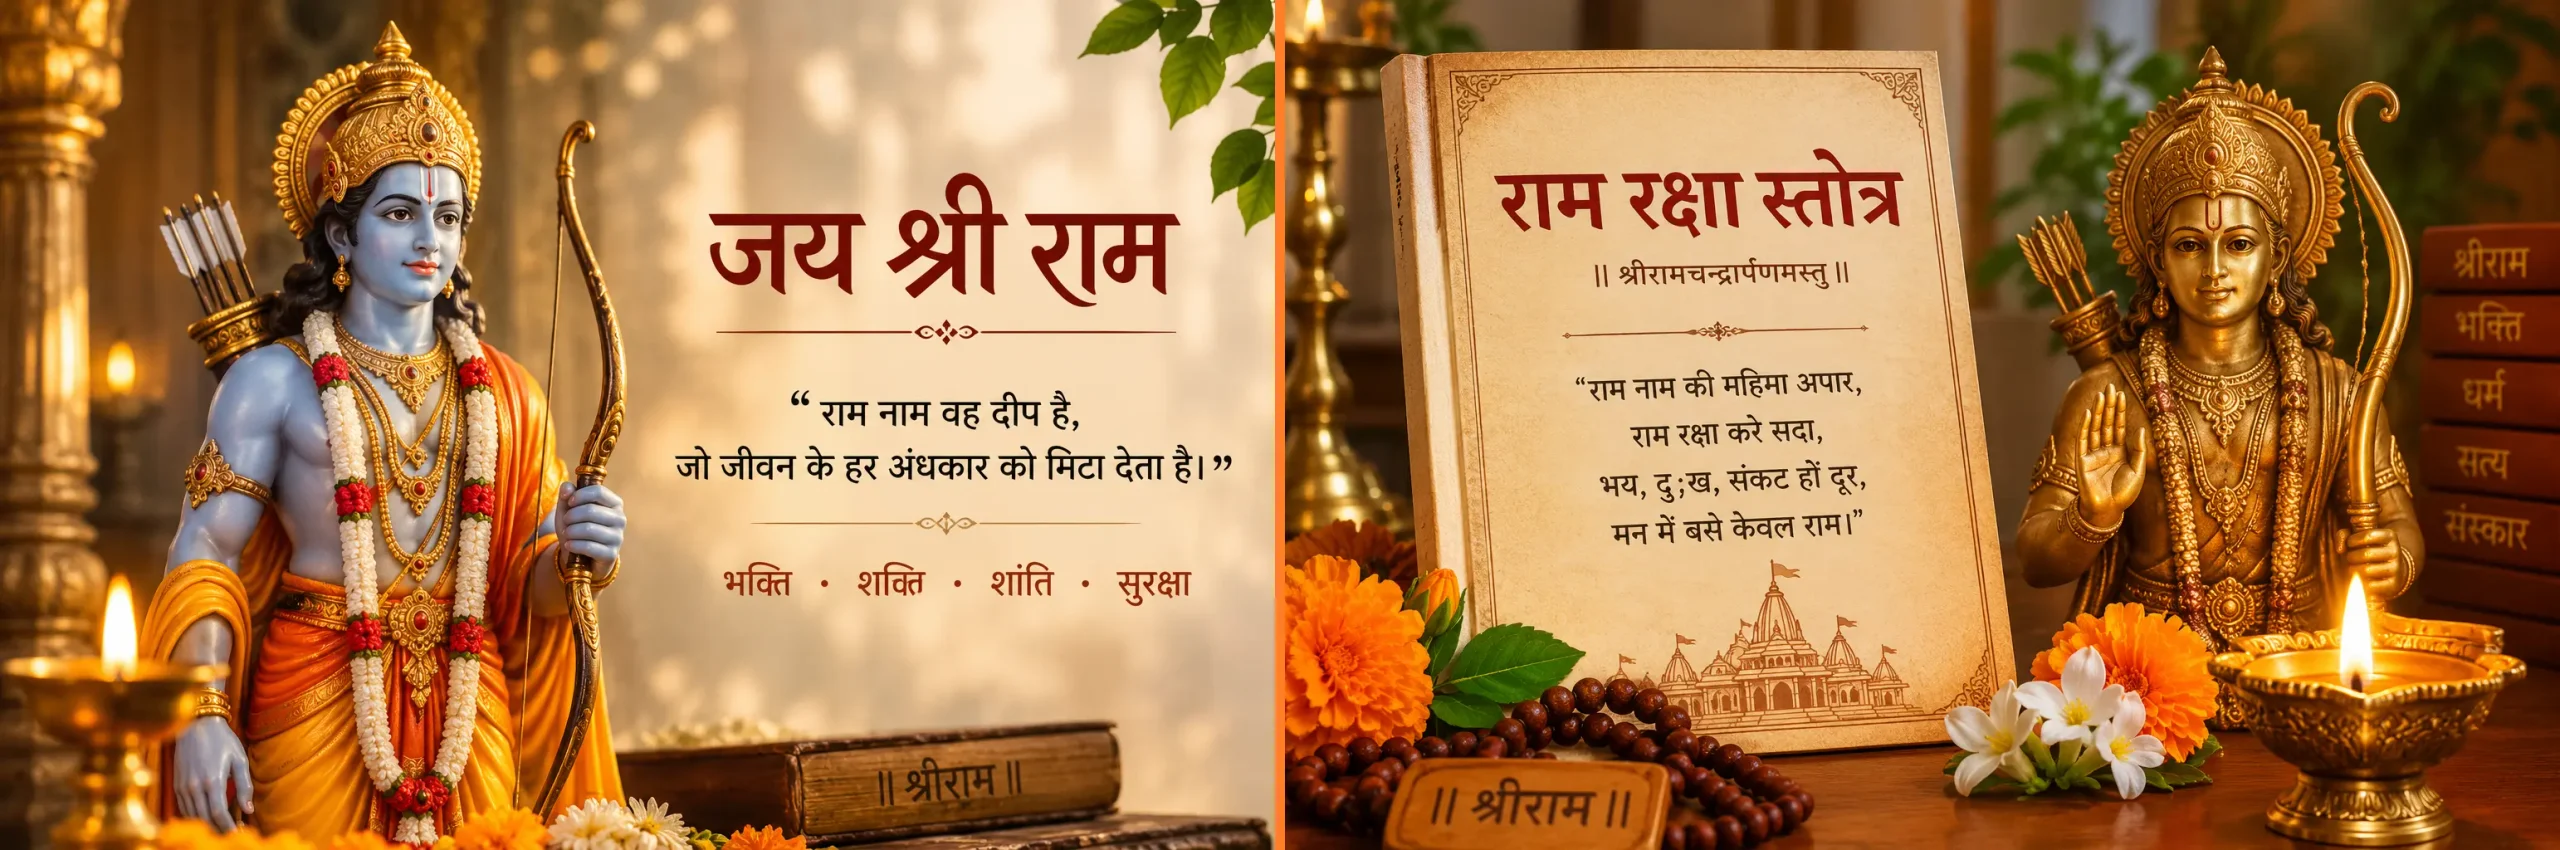 जय श्री राम
“ राम नाम वह दीप है,
जो जीवन के हर अंधकार को मिटा देता है। ”
भक्ति • शक्ति • शांति • सुरक्षा
॥ श्रीराम ॥
राम रक्षा स्तोत्र
॥ श्रीरामचन्द्रार्पणमस्तु ॥
“राम नाम की महिमा अपार,
राम रक्षा करे सदा,
भय, दु;ख, संकट हों दूर,
मन में बसे केवल राम।”
॥ श्रीराम ॥
श्रीराम
भक्ति
धर्म
सत्य
संस्कार